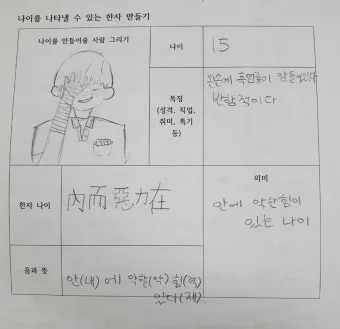 나이를 나타낼 수 있는 한자 만들기
나이를 만들어줄 사람 그리기
나이
15
특징
(성격, 직업,
취미, 특기
등)
왼손에 흑염룡이 잠들어있다
반항적이다
한자 나이
內而惡力在
의미
안에 악한힘이
있는 나이
음과 뜻
안(내) 에 악할(악) 힘(역)
있다(재)